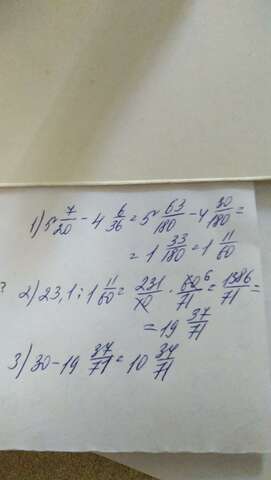 1) 5 7/20 - 4 6/36 = 5 63/180 - 4 30/180 =
= 1 33/180 = 1 11/60
2) 23,1 : 1 11/60 = 231/10 · 60 6/71 = 1386/71 =
= 19 37/71
3) 30 - 19 37/71 = 10 34/71